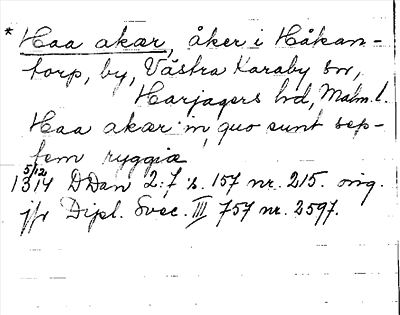 * Haa akær, åker i Håkan-
torp, by, Västra Karaby sn,
Harjagers hd, Malm. l.
Haa akær in quo sunt sep-
tem ryggiæ
5/12
1314 DDan 2:7 s. 157 nr. 215. orig.
jfr Dipl. Svec. III 757 nr. 2597.